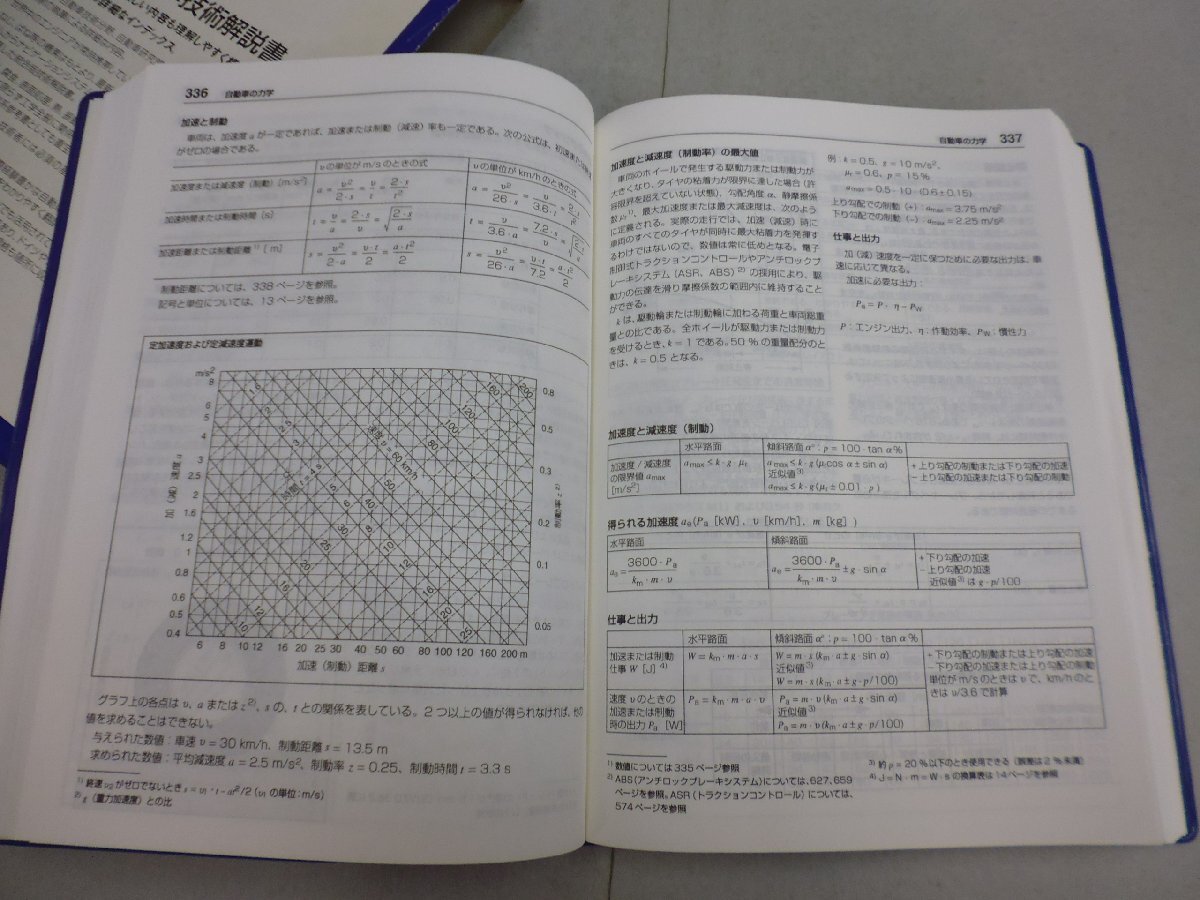 技術解説書
しい内容も理解しやすく
詳細なインデックス
336 自動車の力学
加速と制動
車両は、加速度 a が一定であれば、加速または制動（減速）率も一定である。次の公式は、初速または
がゼロの場合である。
υの単位が m/s のときの式
υの単位が km/h のときの式
加速度または減速度（制動）[m/s²]
a = υ²/2·s = υ/t = 2·s/t²
a = υ²/26·s = υ/3.6·t =
加速時間または制動時間（s）
t = υ/a = 2·s/υ = √2·s/a
t = υ/3.6·a = 7.2·s/υ =
加速距離または制動距離¹⁾ [m]
s = υ²/2·a = υ·t/2 = a·t²/2
s = υ²/26·a = υ·t/7.2 = a·t²/2
制動距離については、338 ページを参照。
記号と単位については、13 ページを参照。
定加速度および定減速度運動
m/s²
8
6
5
4
3
2.5
2
1.6
1.2
1
0.8
0.6
0.5
0.4
加（減）速度 a
0.8
0.5
0.3
0.2
0.1
0.05
制動率 z
速度 υ = 60 km/h
時間 t = 4 s
6 8 10 12 16 20 25 30 40 50 60 80 100 120 160 200 m
加速（制動）距離 s
グラフ上の各点は υ、a または z²⁾、s の、t との関係を表している。2 つ以上の値が得られなければ、他の
値を求めることはできない。
与えられた数値：車速 υ = 30 km/h、制動距離 s = 13.5 m
求められた数値：平均減速度 a = 2.5 m/s²、制動率 z = 0.25、制動時間 t = 3.3 s
¹⁾ 終速 υ₂ がゼロでないとき s = υ₁・t − at²/2 (υ₁ の単位：m/s)
²⁾ g（重力加速度）との比
自動車の力学 337
加速度と減速度（制動率）の最大値
車両のホイールで発生する駆動力または制動力が
大きくなり、タイヤの粘着力が限界に達した場合（許
容限界を超えていない状態）、勾配角度 α、静摩擦係
数 μr ¹⁾、最大加速度または最大減速度は、次のよう
に定義される。実際の走行では、加速（減速）時に
車両のすべてのタイヤが同時に最大粘着力を発揮す
るわけではないので、数値は常に低めとなる。電子
制御式トラクションコントロールやアンチロックブ
レーキシステム（ASR、ABS）²⁾ の採用により、駆
動力の伝達を滑り摩擦係数の範囲内に維持すること
ができる。
k は、駆動輪または制動輪に加わる荷重と車両総重
量との比である。全ホイールが駆動力または制動力
を受けるとき、k = 1 である。50 % の重量配分のと
きは、k = 0.5 となる。
例 k = 0.5、g = 10 m/s²、
μr = 0.6、p = 15 %
amax = 0.5 · 10 · (0.6 ± 0.15)
上り勾配での制動（+）：amax = 3.75 m/s²
下り勾配での制動（−）：amax = 2.25 m/s²
仕事と出力
加（減）速度を一定に保つために必要な出力は、車
速に応じて異なる。
加速に必要な出力：
Pa = P · η − PW
P：エンジン出力、η：作動効率、PW：慣性力
加速度と減速度（制動）
水平路面
傾斜路面 α°；p = 100 · tan α%
加速度／減速度
の限界値 amax
[m/s²]
amax ≤ k · g · μr
amax ≤ k · g (μr cos α ± sin α)
近似値³⁾
amax ≤ k · g (μr ± 0.01 · p)
+ 上り勾配の制動または下り勾配の加速
− 上り勾配の加速または下り勾配の制動
得られる加速度 ae (Pa [kW]、υ [km/h]、m [kg])
水平路面
傾斜路面
ae = 3600 · Pa / km · m · υ
ae = 3600 · Pa / km · m · υ ± g · sin α
+ 下り勾配の加速
− 上り勾配の加速
近似値³⁾ は g · p/100
仕事と出力
水平路面
傾斜路面 α°；p = 100 · tan α%
加速または制動
仕事 W [J] ⁴⁾
W = km · m · a · s
W = m · s (km · a ± g · sin α)
近似値³⁾
W = m · s (km · a ± g · p/100)
+ 下り勾配の制動または上り勾配の加速
− 下り勾配の加速または上り勾配の制動
単位が m/s のときは υ で、km/h のと
きは υ/3.6 で計算
速度 υ のときの
加速または制動
時の出力 Pa [W]
Pa = km · m · a · υ
Pa = m · υ (km · a ± g · sin α)
近似値³⁾
Pa = m · υ (km · a ± g · p/100)
¹⁾ 数値については 335 ページ参照
²⁾ ABS（アンチロックブレーキシステム）については、627, 659
ページを参照。ASR（トラクションコントロール）については、
574 ページを参照
³⁾ 約 p = 20 % 以下のとき使用できる（誤差は 2 % 未満）
⁴⁾ J = N · m = W · s の換算表は 14 ページを参照